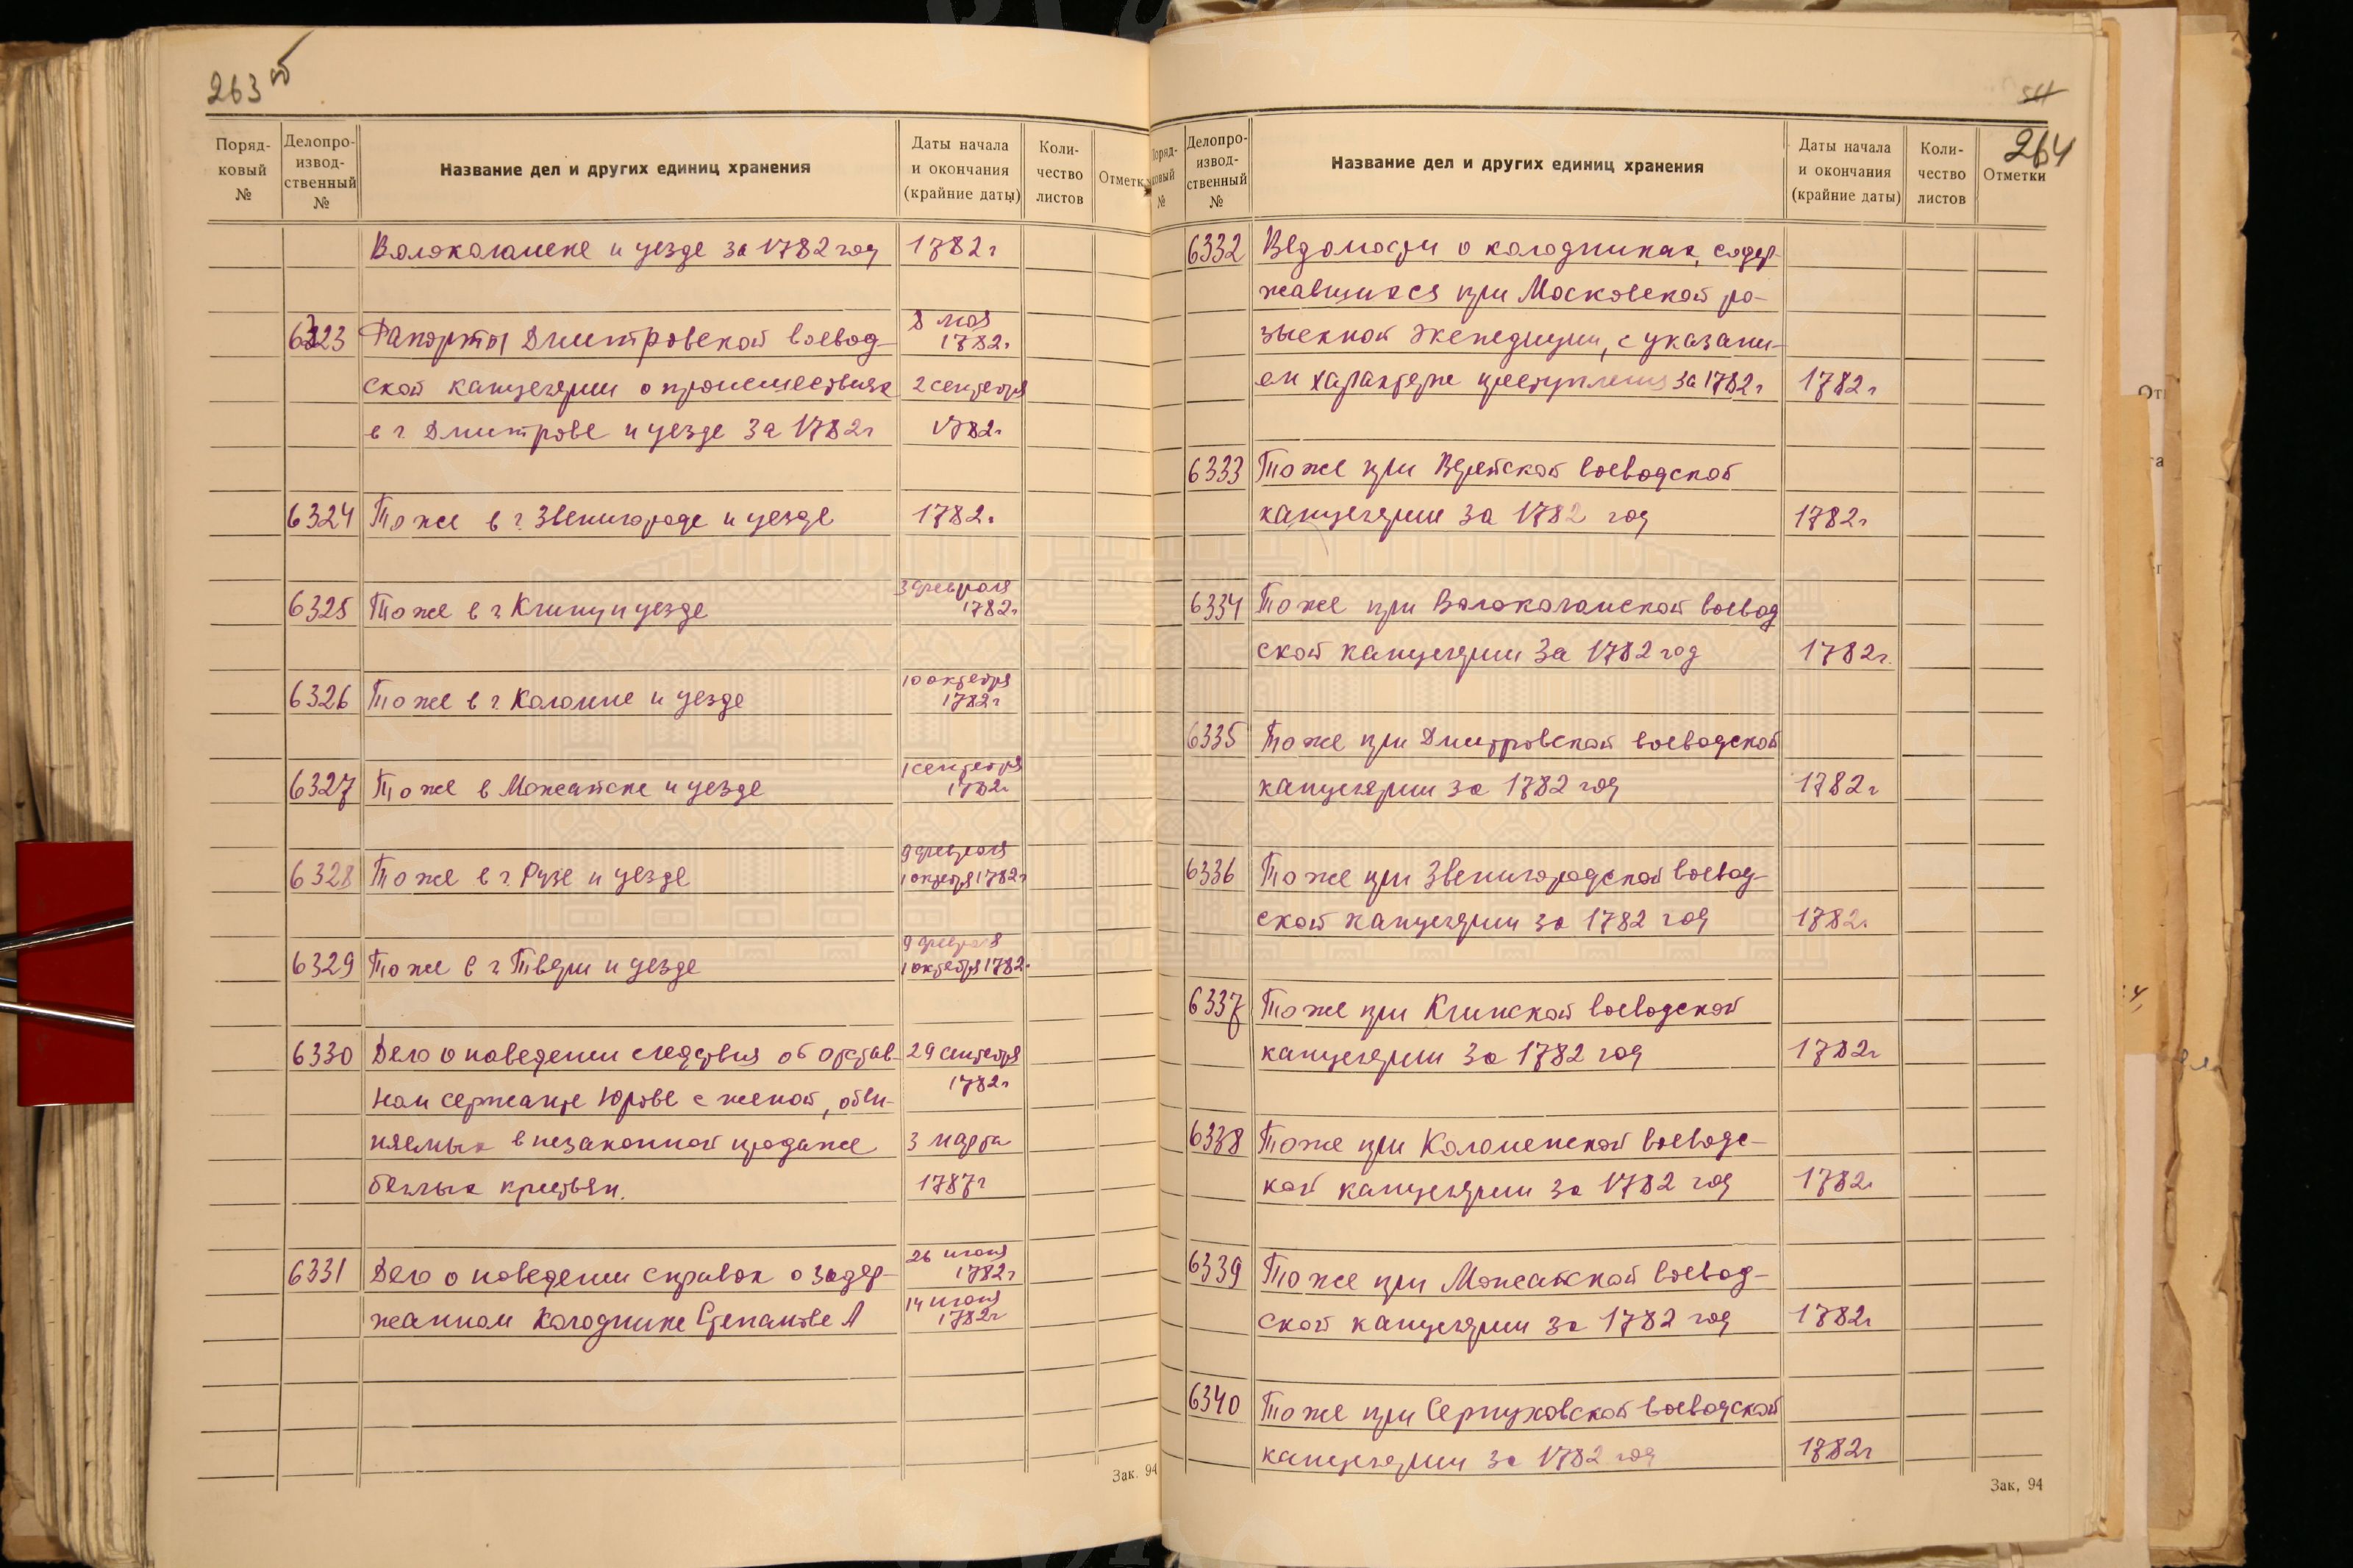 263 об
Поряд-
ковый
№
Делопро-
извод-
ственный
№
Название дел и других единиц хранения
Даты начала
и окончания
(крайние даты)
Коли-
чество
листов
Отметк
Волоколамске и уезде за 1782 год 1782 г
6323 Рапорты Дмитровской воевод- 8 мая 1782 г.
ской канцелярии о происшествиях 2 сентября
в г. Дмитрове и уезде за 1782 г 1782 г.
6324 То же в г. Звенигороде и уезде 1782 г.
6325 То же в г. Клину и уезде 3 февраля 1782 г
6326 То же в г. Коломне и уезде 10 октября 1782 г
6327 То же в Можайске и уезде 1 сентября 1782 г.
6328 То же в г. Рузе и уезде 9 февраля 1 октября 1782 г
6329 То же в г. Твери и уезде 9 февраля 1 октября 1782 г.
6330 Дело о наведении следствия об отстав- 29 сентября
ном сержанте Юрове с женой, обви- 1782 г
няемых в незаконной продаже 3 марта
беглых крестьян. 1787 г
6331 Дело о наведении справок о задер- 26 июня 1782 г
жанном колоднике Степанове А 14 июля 1782 г
Зак. 94
511
264
Поряд-
ковый
№
Делопро-
извод-
ственный
№
Название дел и других единиц хранения
Даты начала
и окончания
(крайние даты)
Коли-
чество
листов
Отметки
6332 Ведомости о колодниках, содер-
жавшихся при Московской ро-
зыскной экспедиции, с указани-
ем характера преступления за 1782 г 1782 г
6333 То же при Верейской воеводской
канцелярии за 1782 год 1782 г
6334 То же при Волоколамской воевод
ской канцелярии за 1782 год 1782 г.
6335 То же при Дмитровской воеводской
канцелярии за 1782 год 1782 г
6336 То же при Звенигородской воевод-
ской канцелярии за 1782 год 1782 г.
6337 То же при Клинской воеводской
канцелярии за 1782 год 1782 г
6338 То же при Коломенской воеводс-
кой канцелярии за 1782 год 1782 г
6339 То же при Можайской воевод-
ской канцелярии за 1782 год 1782 г
6340 То же при Серпуховской воеводской
канцелярии за 1782 год 1782 г
Зак, 94